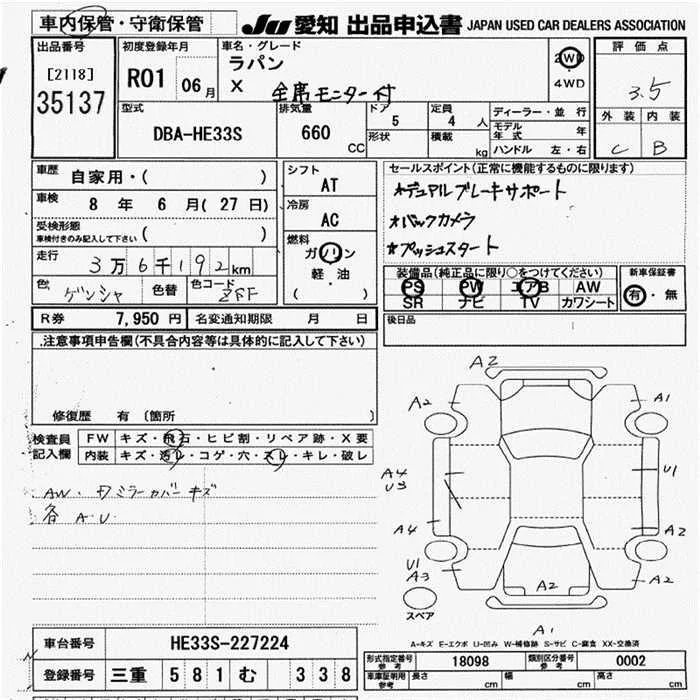 車内保管・守衛保管
JU 愛知 出品申込書 JAPAN USED CAR DEALERS ASSOCIATION
出品番号
[2118]
35137
初度登録年月
R01 06月
車名・グレード
ラパン
X 全席モニター付
2WD
4WD
評価点
3.5
外装 内装
C B
型式
DBA-HE33S
排気量
660 CC
ドア
5
形状
定員
4 人
積載
kg
ディーラー・並行
モデル年式 年
ハンドル 左・右
車歴
自家用・( )
車検
8 年 6 月( 27 日)
受検形態
車検付きのみ記入して下さい ( )
走行
3万6千192km
色 ゲンシャ 色替 色コード ZFF
シフト
AT
冷房
AC
燃料
ガソリン
軽・油
( )
セールスポイント(正常に機能するものに限ります)
★デュアルブレーキサポート
★バックカメラ
★プッシュスタート
装備品(純正品に限り○をつけてください)
PS PW エアB AW
SR ナビ TV カワシート
新車保証書
有・無
R券 7,950 円 名変通知期限 月 日
後日品
.注意事項申告欄(不具合内容等は具体的に記入して下さい)
修復歴 有 〔箇所 〕
検査員記入欄
FW キズ・飛石・ヒビ割・リペア跡・X要
内装 キズ・汚レ・コゲ・穴・スレ・キレ・破レ
ミラーカバーキズ
各 A.U
A2
A2
A1
A4
U3
U1
A4
A2
U1
A3
A2
A2
スペア
A1
A-キズ E-エクボ U-凹み W-補修跡 S-サビ C-腐食 XX-交換済
車台番号 HE33S-227224
登録番号 三重 581 む 338
形式指定番号 参考 18098 類別区分番号 参考 0002
車庫証明用 参考 長さ cm 幅 cm 高さ cm